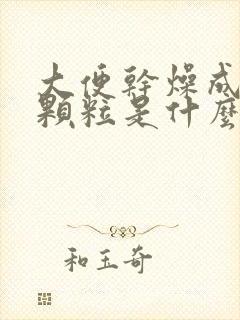 大便幹燥成
顆粒是什麼
和玉奇